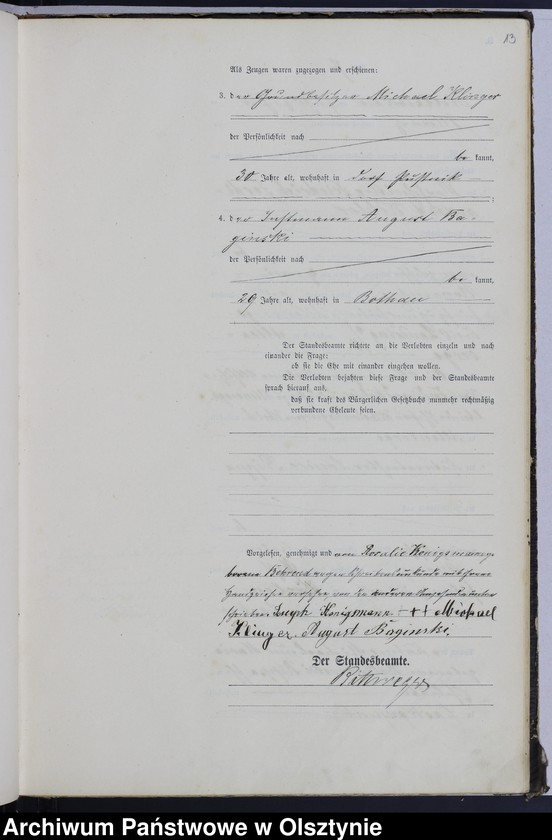 13
Als Zeugen waren zugezogen und erschienen:
3. der Grundbesitzer Michael Klinger
der Persönlichkeit nach
be kannt,
30 Jahre alt, wohnhaft in Dorf Pustnik
;
4. der Instmann August Ba-
ginski
der Persönlichkeit nach
be kannt,
29 Jahre alt, wohnhaft in Bothau
Der Standesbeamte richtete an die Verlobten einzeln und nach
einander die Frage:
ob sie die Ehe mit einander eingehen wollen.
Die Verlobten bejahten diese Frage und der Standesbeamte
sprach hierauf aus,
daß sie kraft des Bürgerlichen Gesetzbuchs nunmehr rechtmäßig
verbundene Eheleute seien.
Vorgelesen, genehmigt und von Rosalie Königsmann ge-
borene Behrend wegen Schreibensunkunde mit ihrem
Handzeichen versehen, von den anderen unter
schrieben Königsmann. +++ Michael
Klinger. August Baginski.
Der Standesbeamte.
Archiwum Państwowe w Olsztynie